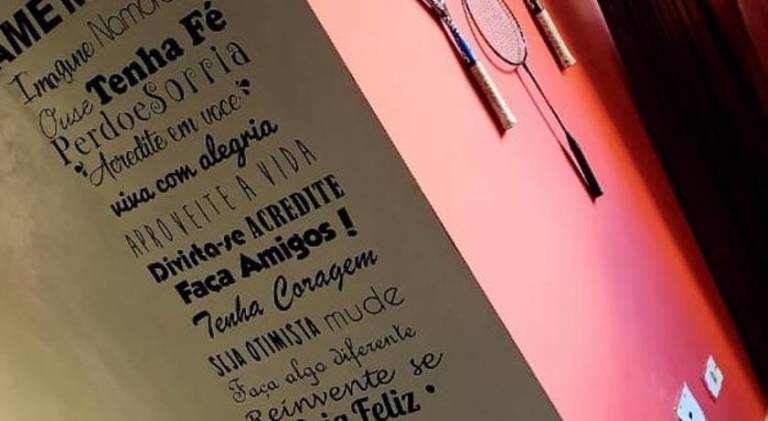 AME M
Imagine Namore
Ouse Tenha Fé
Perdoe Sorria
Acredite em você
viva com alegria
APROVEITE A VIDA
Divirta-se ACREDITE
Faça Amigos !
Tenha Coragem
SEJA OTIMISTA mude
Faça algo diferente
Reinvente se
Seja Feliz